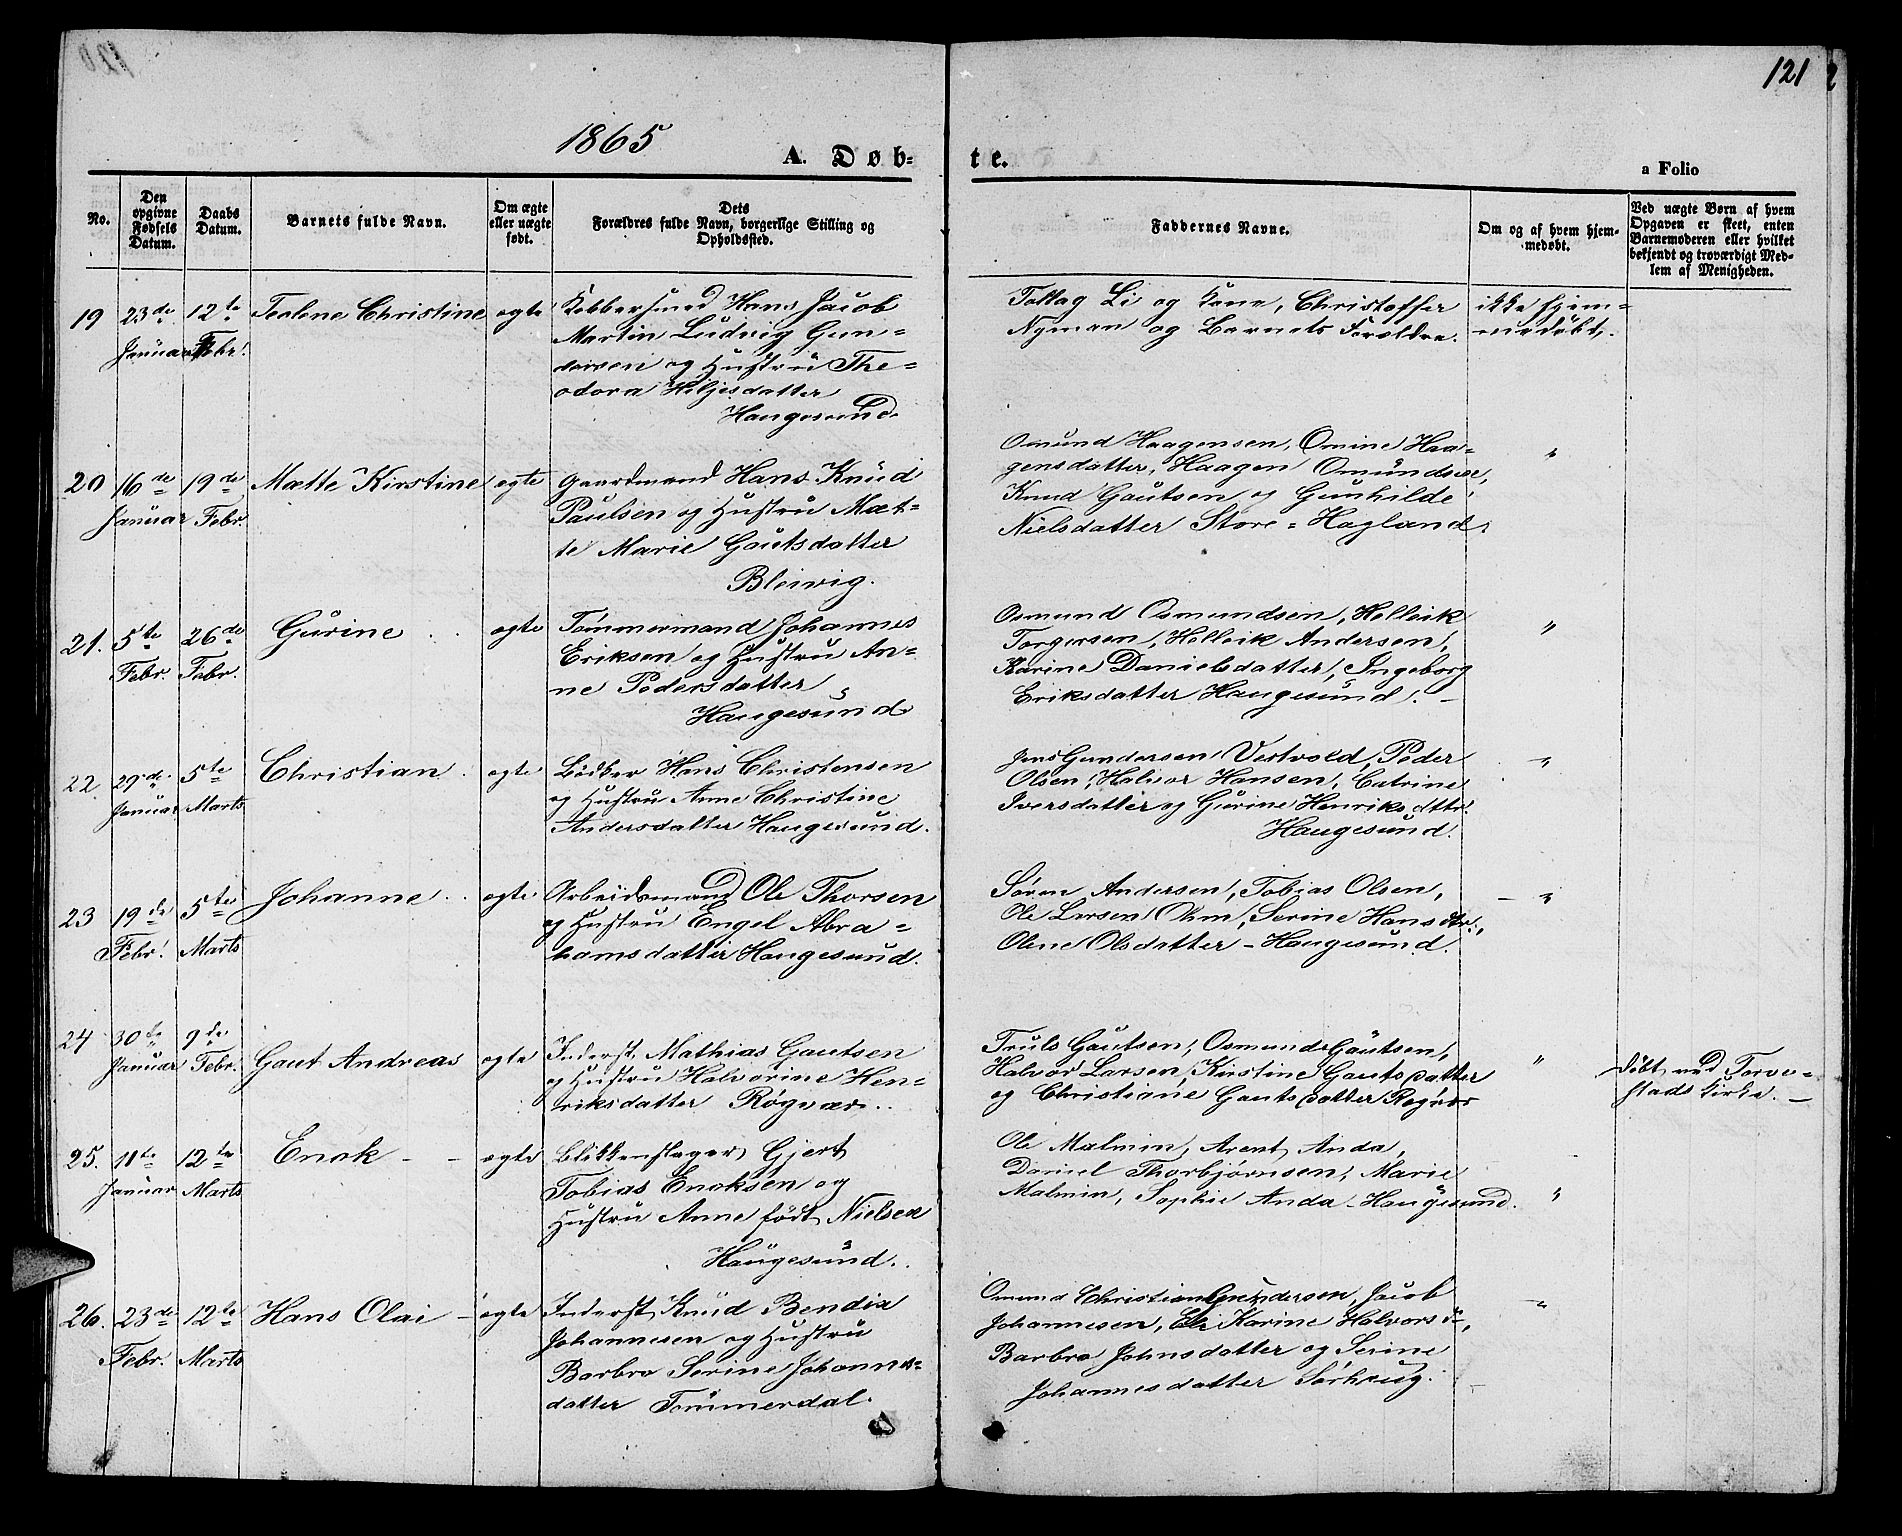 121
1865
A. Døb-
te.
a Folio
No.
Den opgivne Fødsels Datum.
Daabs Datum.
Barnets fulde Navn.
Om ægte eller uægte født.
Dets Forældres fulde Navn, borgerlige Stilling og Opholdssted.
Faddernes Navne.
Om og af hvem hjem-
medøbt.
Ved uægte Børn af hvem
Opgaven er skeet, enten
Barnemoderen eller hvilket
bekjendt og troværdigt Med-
lem af Menigheden.
19 23de Januar 12te Febr. Teoline Christine ægte
Kobbersmed Hans Jacob
Martin Ludvig Gun-
dersen og Hustru The-
odora Hiljesdatter
Haugesund
Tollag Li og Kone, Christoffer
Nyman og Barnets Forældre.
ikke hjem-
medøbt.
20 16de Januar 19de Febr. Mætte Kirstine ægte
Gaardmand Hans Knud
Paulsen og Hustru Mæt-
te Marie Gautsdatter
Bleivig.
Osmund Haagensen, Omine Haa-
gensdatter, Haagen Omundsen,
Knud Gautsen og Gunhilde
Nielsdatter Store-Hagland.
"
21. 5te Febr. 26de Febr. Gurine ægte
Tømmermand Johannes
Eriksen og Hustru An-
ne Pedersdatter
Haugesund
Osmund Osmundsen, Helleik
Torgersen, Helleik Andersen,
Karine Danielsdatter, Ingeborg
Eriksdatter Haugesund. -
"
22. 29de Januar 5te Marts Christian ægte
Bødker Hans Christensen
og Hustru Anne Christine
Andersdatter Haugesund.
Jens Gundersen Vestvold, Peder
Olsen, Halvor Hansen, Catrine
Iversdatter og Gurine Henriksdttr.
Haugesund.
"
23 19de Febr. 5te Marts Johanne ægte
Arbeidsmand Ole Thorsen
og Hustru Engel Abra-
hamsdatter Haugesund.
Søren Andersen, Tobias Olsen,
Ole Larsen Ohm, Serine Hansdtr.,
Oline Olsdatter - Haugesund.
"
24 30te Januar 9de Febr. Gaut Andreas ægte
Inderst Mathias Gautsen
og Hustru Halvorine Hen-
riksdatter Røgvær.
Truls Gautsen, Osmund Gautsen,
Halvor Larsen, Kirstine Gautsdatter
og Christiane Gautsdatter Røgvær
"
Døbt ved Torve-
stads Kirke. -
25. 11te Januar 12te Marts Enok - - ægte
Blikkenslager Gjert
Tobias Enoksen og
Hustru Anne født Nielsen
Haugesund.
Ole Malmin, Arent Anda,
Daniel Thorbjørnsen, Marie
Malmin, Sophie Anda - Haugesund.
"
26. 23de Febr. 12te Marts Hans Olai - ægte
Inderst Knud Bendix
Johannesen og Hustru
Barbro Serine Johannes-
datter Tømmerdal.
Osmund Christian Gundersen, Jacob
Johannesen, Karine Halvorsd.,
Barbra Johnsdatter og Serine
Johannesdatter
"